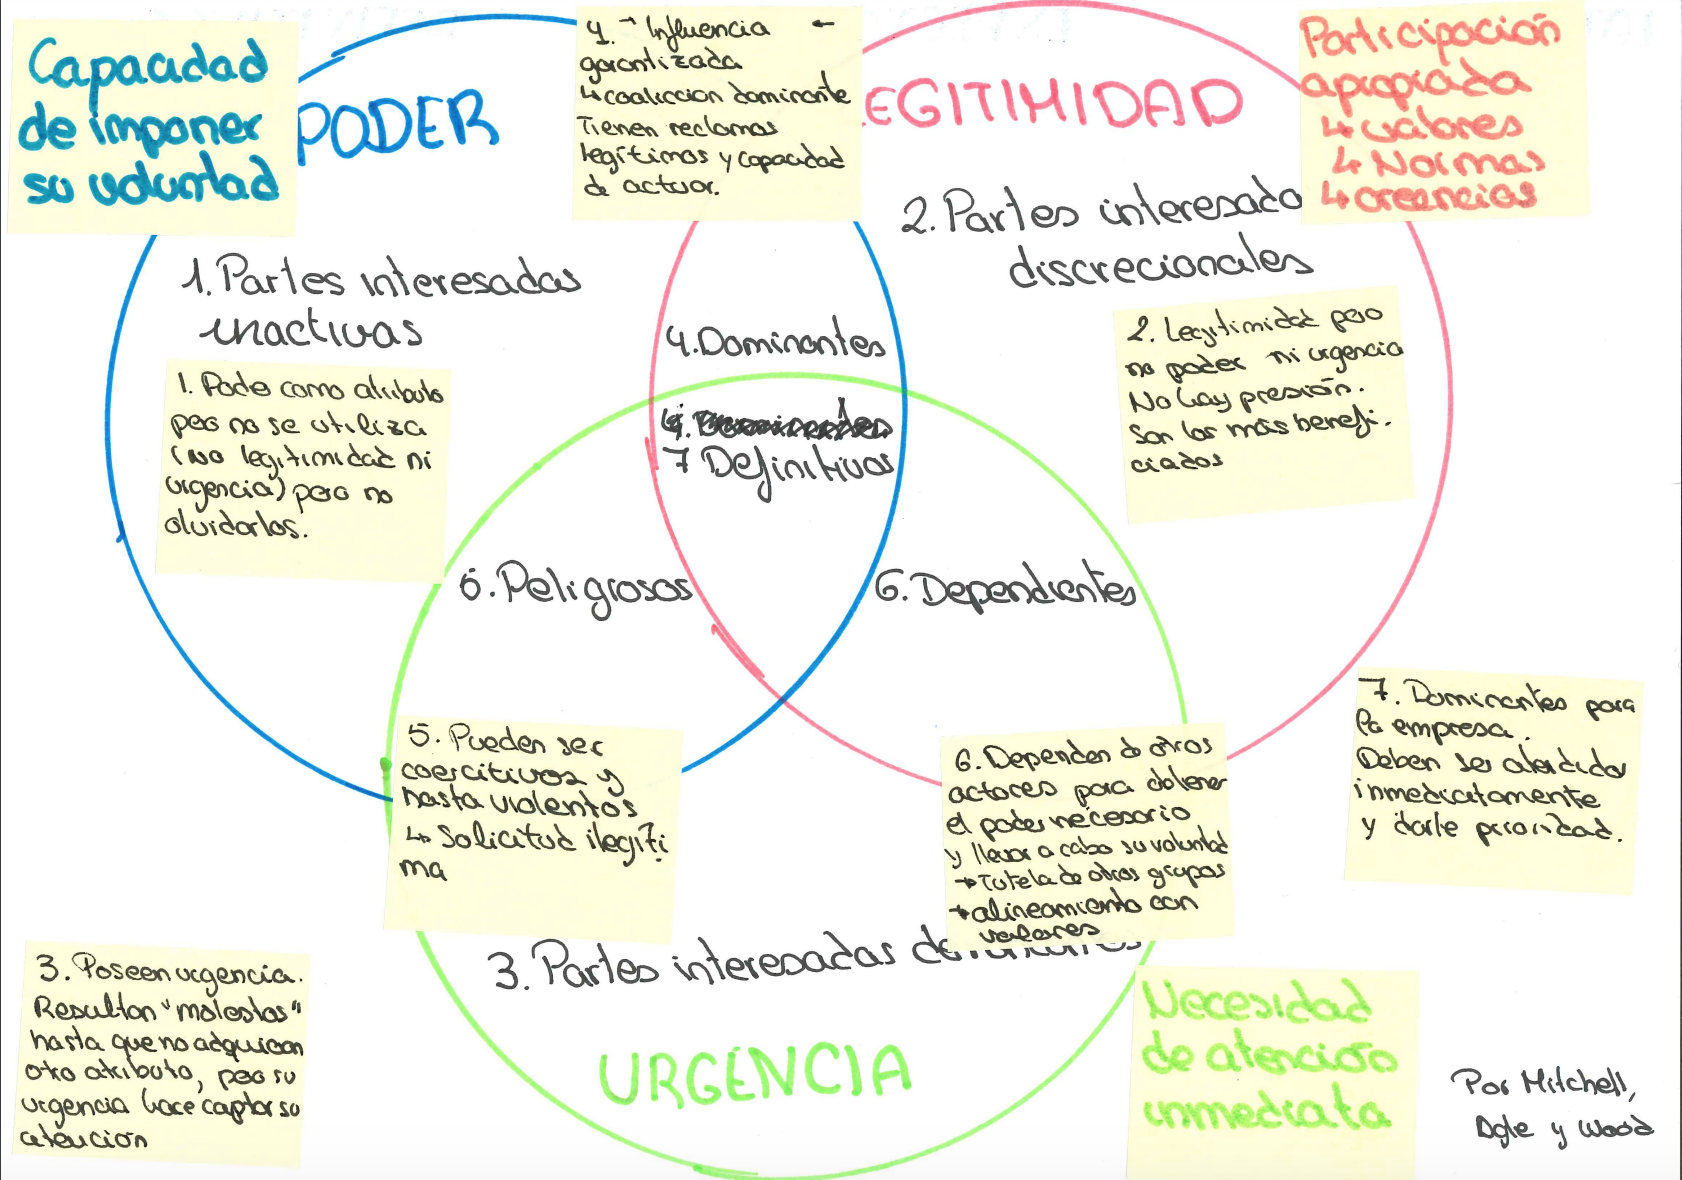 Capacidad
de imponer
su voluntad
PODER
4. → Influencia ←
garantizada
↳ coaliccion dominante
Tienen reclamos
legítimos y capacidad
de actuar.
EGITIMIDAD
Participación
apropiada
↳ valores
↳ Normas
↳ creencias
1. Partes interesadas
inactivas
2. Partes interesada
discrecionales
1. Poder como atributo
pero no se utiliza
(no legitimidad ni
urgencia) pero no
olvidarlos.
4. Dominantes
7 Definitivos
2. Legitimidad pero
no poder ni urgencia
No hay presión.
Son los más benefi-
ciados
5. Peligrosos
6. Dependientes
5. Pueden ser
coercitivos y
hasta violentos
↳ Solicitud ilegíti
ma
6. Dependen de otros
actores para obtener
el poder necesario
y llevar a cabo su voluntad
→ Tutela de otros grupos
→ alineamiento con
valores
7. Dominantes para
la empresa.
Deben ser atendidos
inmediatamente
y darle prioridad.
3. Partes interesadas
3. Poseen urgencia.
Resultan "molestos"
hasta que no adquieran
otro atributo, pero su
urgencia hace captar su
atención
URGENCIA
Necesidad
de atención
inmediata
Por Mitchell,
Agle y Wood